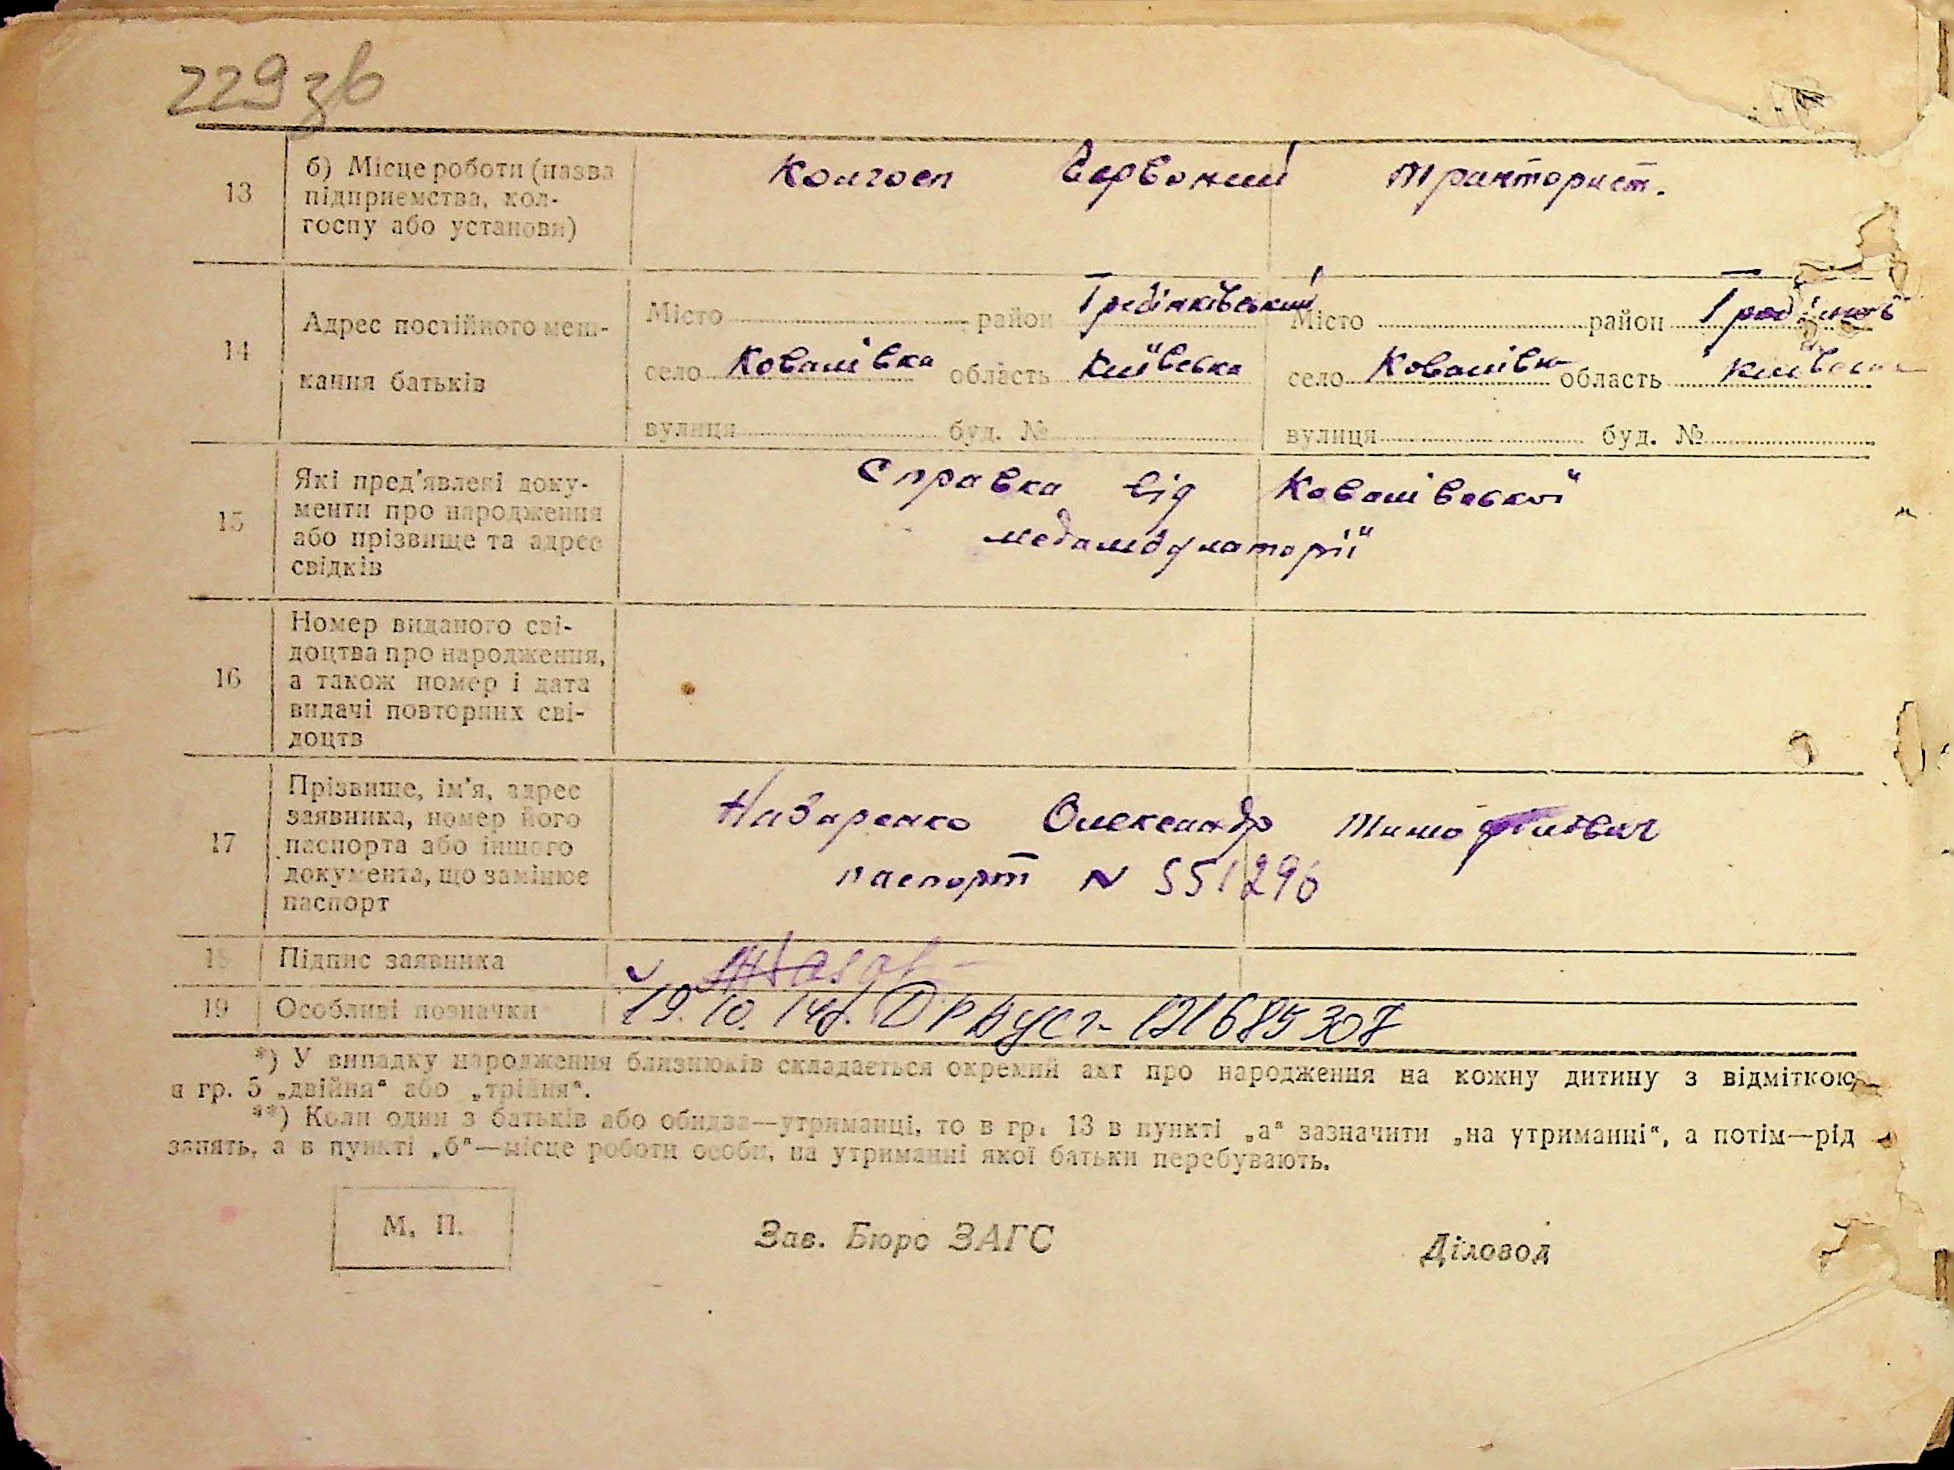 229 зв
13
б) Місце роботи (назва
підприємства, кол-
госпу або установи)
Колгосп Червоний тракторист.
14
Адрес постійного меш-
кання батьків
Місто район Гребінківський
село Ковалівка область Київська
вулиця буд. №
Місто район Гребінків
село Ковалівк область Київська
вулиця буд. №
15
Які пред'явлені доку-
менти про народження
або прізвище та адрес
свідків
Справка від Ковалівської
медамбулаторії
16
Номер виданого сві-
доцтва про народження,
а також номер і дата
видачі повторних сві-
доцтв
17
Прізвище, ім'я, адрес
заявника, номер його
паспорта або іншого
документа, що замінює
паспорт
Назаренко Олександр Тимофійович
паспорт N 551296
18
Підпис заявника
19
Особливі позначки
19.10.
*) У випадку народження близнюків складається окремий акт про народження на кожну дитину з відміткою
в гр. 5 „двійня“ або „трійня“.
**) Коли один з батьків або обидва—утриманці, то в гр. 13 в пункті „а“ зазначити „на утриманні“, а потім—рід
занять, а в пункті „б“—місце роботи особи, на утриманні якої батьки перебувають.
М. П.
Зав. Бюро ЗАГС
Діловод